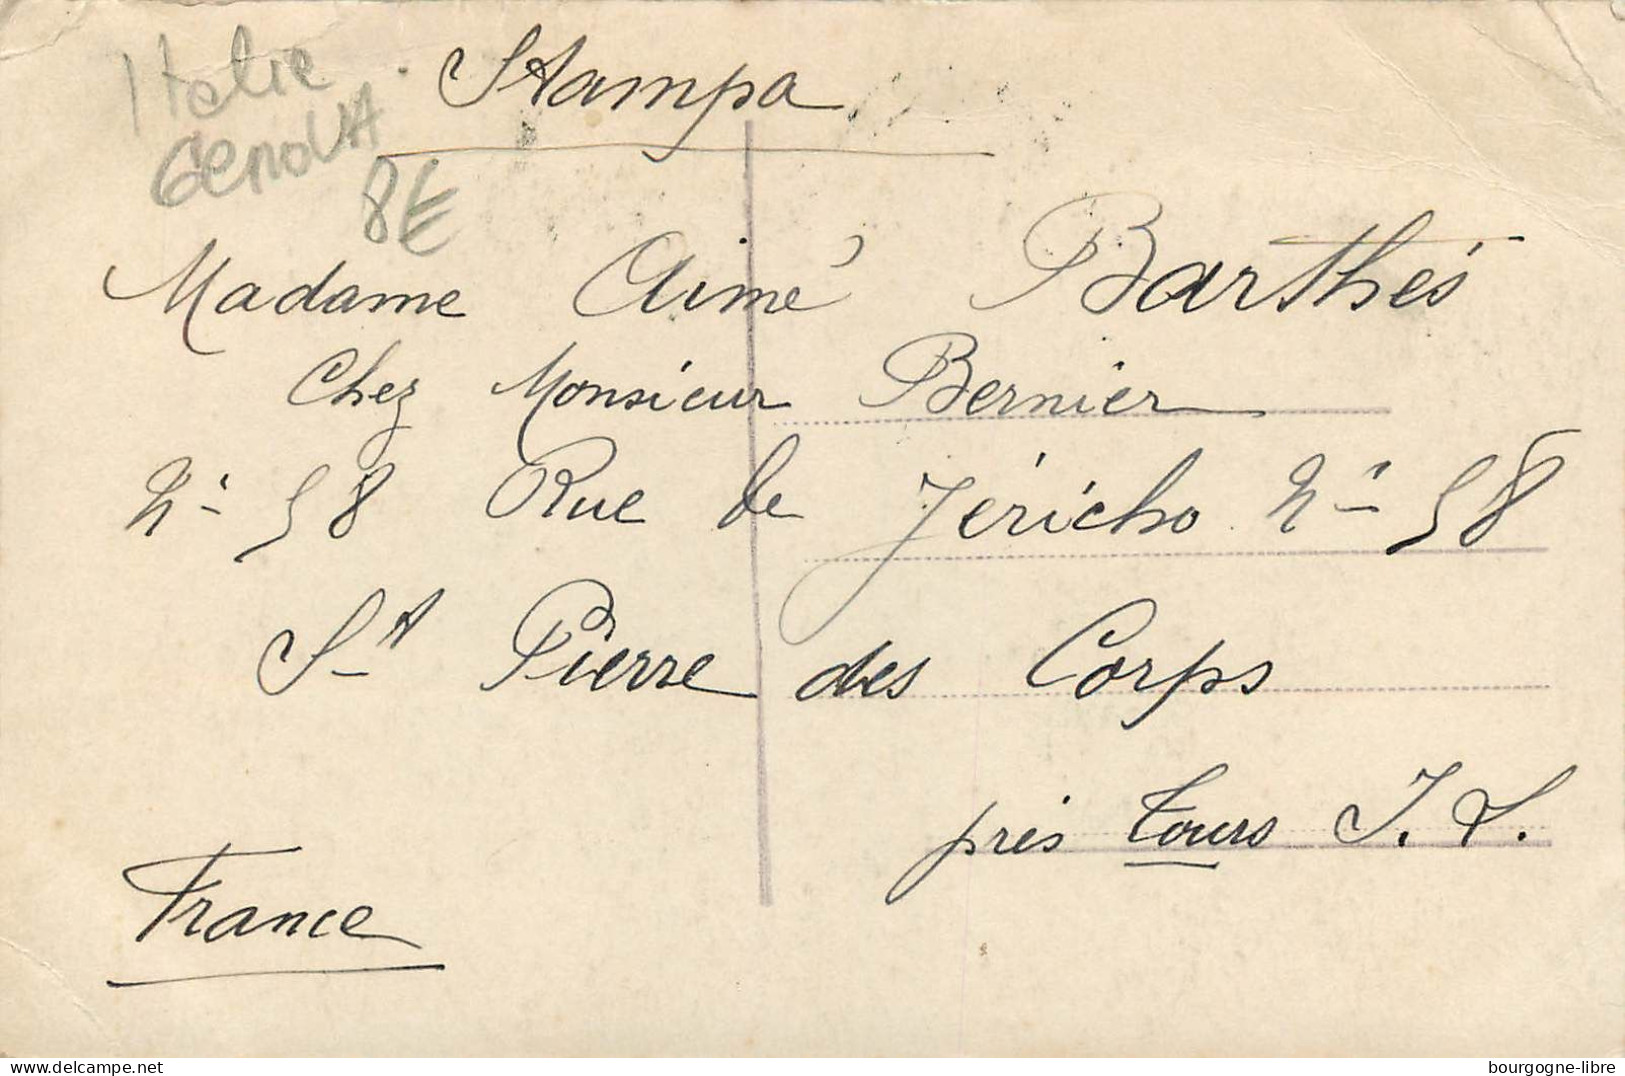 Italie
GENOVA
8€
Stampa
Madame Aimé Barthés
Chez Monsieur Bernier
N° 58 Rue de Jéricho N° 58
St Pierre des Corps
près Tours I. L.
France
delcampe.net
bourgogne-libre